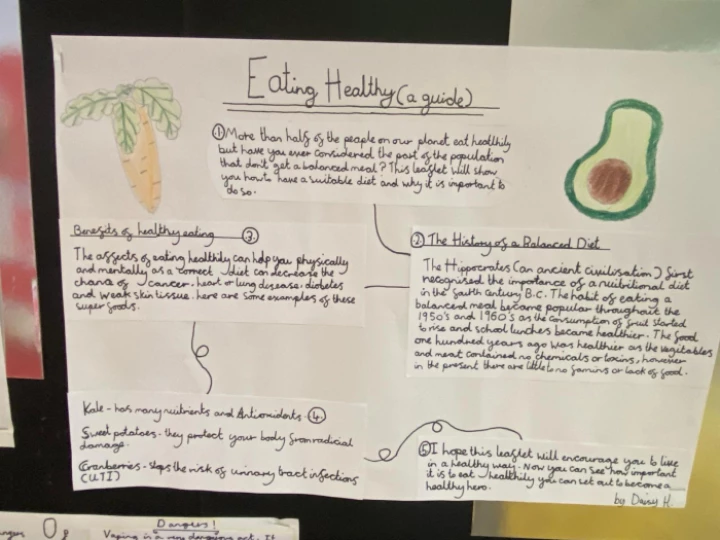 Eating Healthy (a guide)
① More than half of the people on our planet eat healthily
but have you ever considered the part of the population
that don't get a balanced meal? This leaflet will show
you how to have a suitable diet and why it is important to
do so.
② The History of a Balanced Diet
The Hippocrates (an ancient civilisation) first
recognised the importance of a nutritional diet
in the fourth century B.C. The habit of eating a
balanced meal became popular throughout the
1950's and 1960's as the consumption of fruit started
to rise and school lunches became healthier. The food
one hundred years ago was healthier as the vegetables
and meat contained no chemicals or toxins, however
in the present there are little to no famins or lack of food.
Benefits of healthy eating ③
The affects of eating healthily can help you physically
and mentally as a correct diet can decrease the
chance of cancer, heart or lung disease, diabetes
and weak skin tissue. here are some examples of these
super foods.
Kale - has many nutrients and Antioxidents. ④
Sweet potatoes - they protect your body from radical
damage.
Cranberries - stops the risk of urinary tract infections
(UTI)
⑤ I hope this leaflet will encourage you to live
in a healthy way. Now you can see how important
it is to eat healthily you can set out to become a
healthy hero.
by Daisy H.
Dangers!
Vaping is a very dangerous act. It